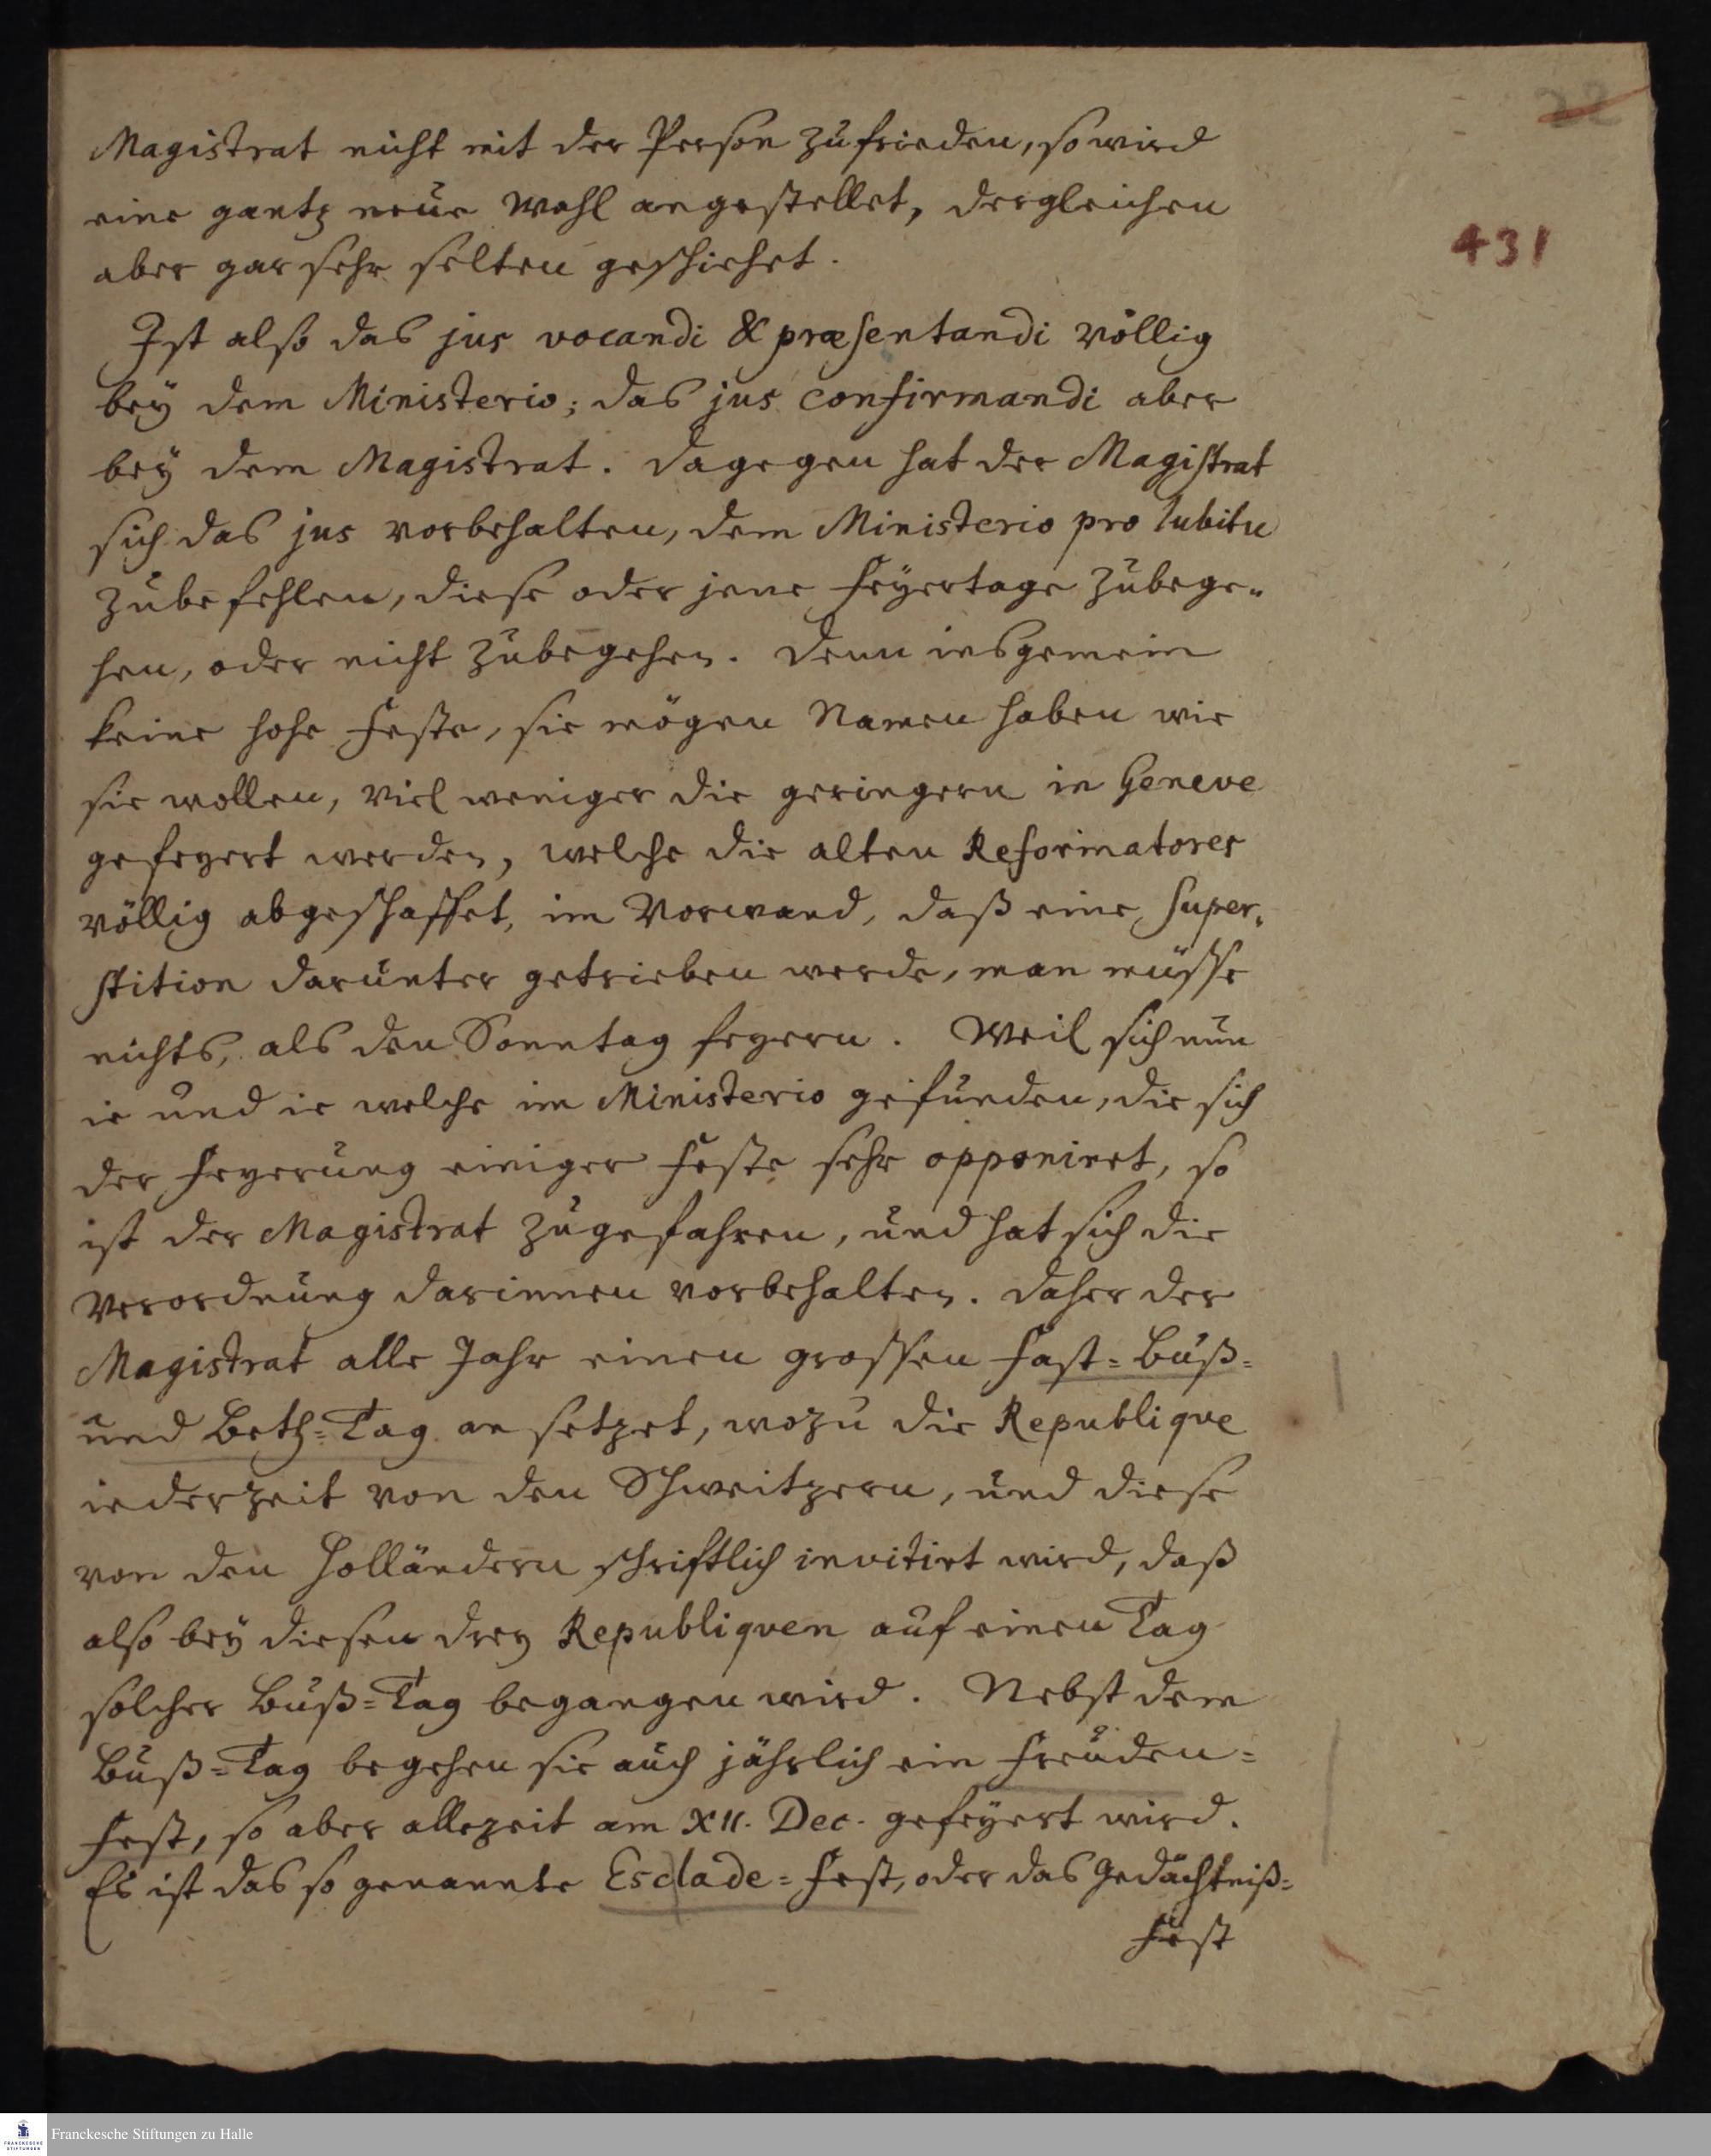 22
431
Magistrat nicht mit der Person zufrieden, so wird
eine gantz neue Wahl angestellet, dergleichen
aber gar sehr selten geschiehet.
Ist also das jus vocandi & præsentandi völlig
bey dem Ministerio; das jus confirmandi aber
bey dem Magistrat. Dagegen hat der Magistrat
sich das jus vorbehalten, dem Ministerio pro lubitu
zubefehlen, diese oder jene Feyertage zubege-
hen, oder nicht zubegehen. Denn insgemein
keine hohe Feste, sie mögen Namen haben wie
sie wollen, viel weniger die geringern in Geneve
gefeyert werden, welche die alten Reformatores
völlig abgeschaffet, im Vorwand, daß eine Super-
stition darunter getrieben werde, man müsse
nichts, als den Sonntag feyern. Weil sich nun
ie und ie welche im Ministerio gefunden, die sich
der Feyerung einiger Feste sehr opponiret, so
ist der Magistrat zugefahren, und hat sich die
Verordnung darinnen vorbehalten. Daher der
Magistrat alle Jahr einen grossen Fast=Buß=
und Beth=Tag ansetzet, wozu die Republique
iederzeit von den Schweitzern, und diese
von den Holländern schriftlich invitirt wird, daß
also bey diesen drey Republiquen auf einen Tag
solcher Buß=Tag begangen wird. Nebst dem
Buß=Tag begehen sie auch jährlich ein Freuden=
Fest, so aber allezeit am XII. Dec. gefeyert wird.
Es ist das so genannte Esclade=Fest, oder das Gedächtniß=
Fest
Franckesche Stiftungen zu Halle
FRANCKESCHE
STIFTUNGEN